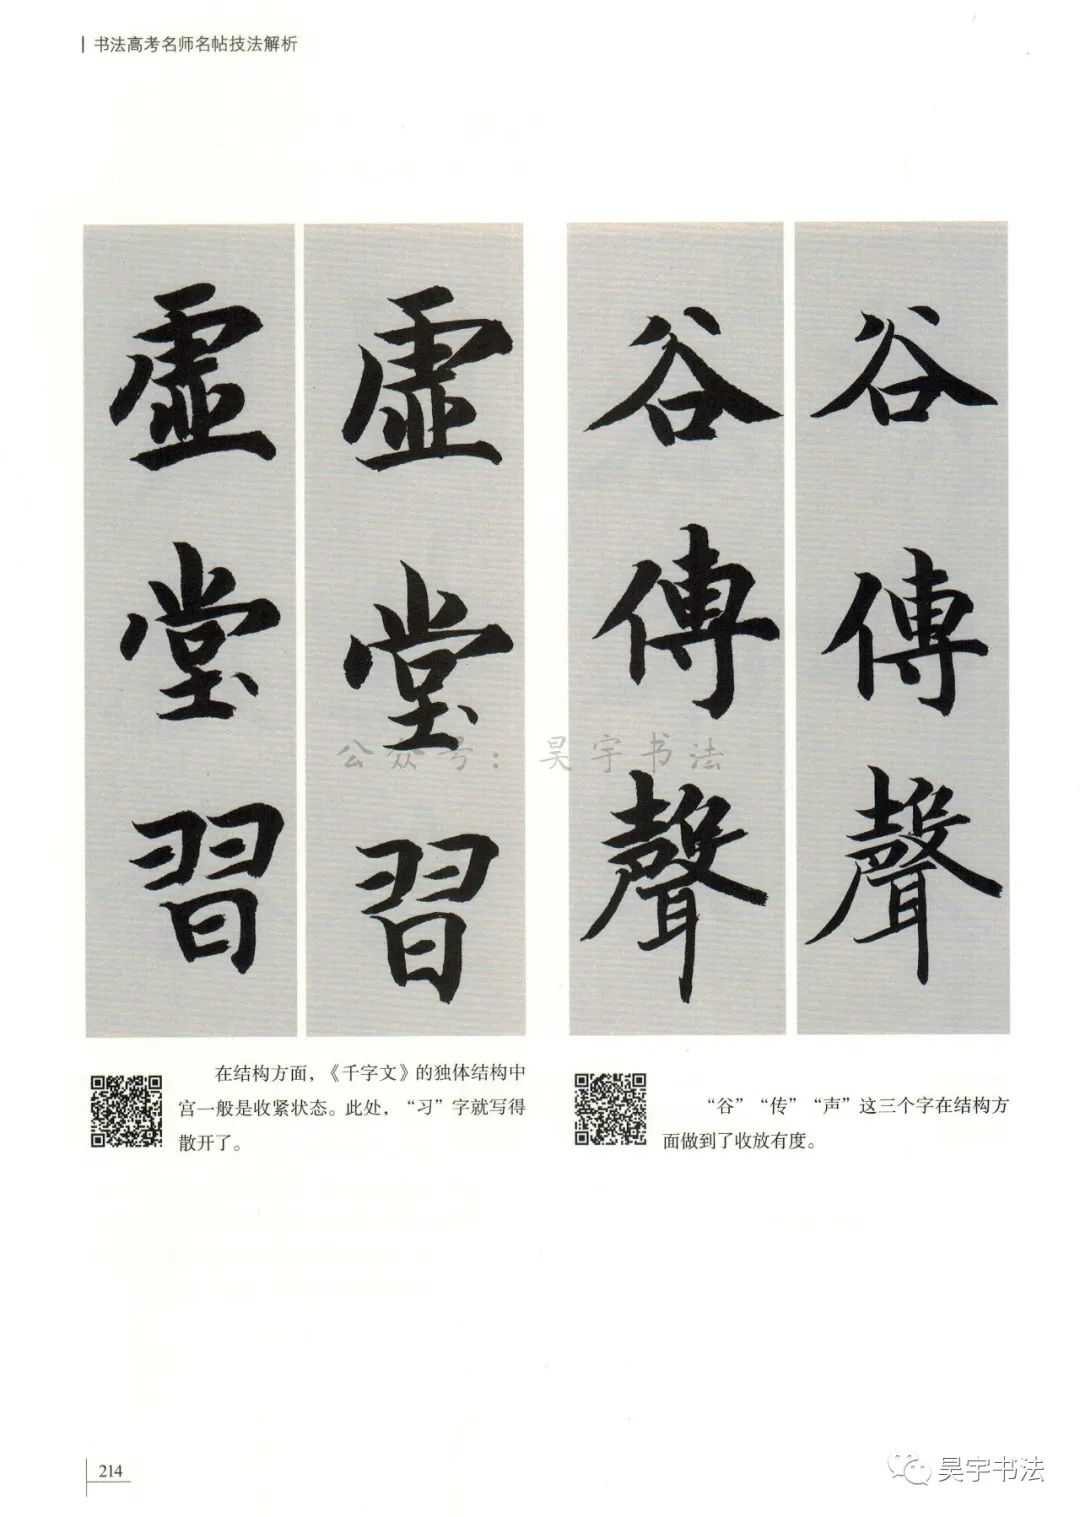 书法高考名师名帖技法解析
虚 虚 谷 谷
堂 堂 傳 傳
習 習 聲 聲
公众号：昊宇书法
在结构方面，《千字文》的独体结构中
宫一般是收紧状态。此处，“习”字就写得
散开了。
“谷”“传”“声”这三个字在结构方
面做到了收放有度。
214
昊宇书法